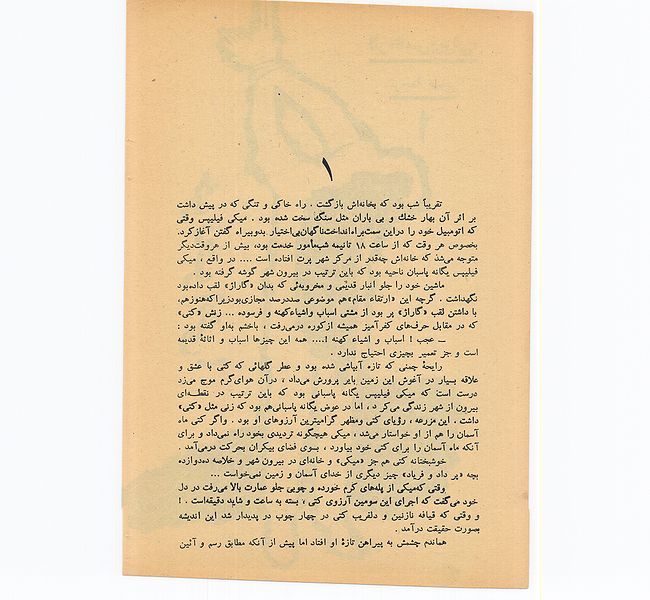 ۱
تقریباً شب بود که بخانه‌اش بازگشت . راه خاکی و تنگی که در پیش داشت
بر اثر آن بهار خشك و بی باران مثل سنگ سخت شده بود . میکی فیلیپس وقتی
که اتومبیل خود را دراین سمت براه انداخت ناگهان بی‌اختیار بدوبیراه گفتن آغازکرد.
بخصوص هر وقت که از ساعت ۱۸ تانیمه شب مأمور خدمت بود، بیش از هروقت‌دیگر
متوجه می‌شد که خانه‌اش چه‌قدر از مرکز شهر پرت افتاده است .... در واقع ، میکی
فیلیپس یگانه پاسبان ناحیه بود که باین ترتیب در بیرون شهر گوشه گرفته بود .
ماشین خود را جلو انبار قدیمی و مخروبه‌ئی که بدان «گاراژ» لقب داده‌بود
نگهداشت . گرچه این «ارتقاء مقام» هم موضوعی صددرصد مجازی‌بودزیراکه‌هنوزهم،
با داشتن لقب «گاراژ» پر بود از مشتی اسباب واشیاءکهنه و فرسوده ... زنش «کتی»
که در مقابل حرف‌های کفرآمیز همیشه ازکوره درمی‌رفت ، باخشم به‌او گفته بود :
ـــ عجب ! اسباب و اشیاء کهنه !.... همه این چیزها اسباب و اثاثهٔ قدیمه
است و جز تعمیر بچیزی احتیاج ندارد .
رایحهٔ چمنی که تازه آبپاشی شده بود و عطر گلهائی که کتی با عشق و
علاقه بسیار در آغوش این زمین بایر پرورش می‌داد ، درآن هوای‌گرم موج می‌زد
درست است که میکی فیلیپس یگانه پاسبانی بود که باین ترتیب در نقطه‌ای
بیرون از شهر زندگی می‌کرد ، اما در عوض یگانه پاسبانی‌هم بود که زنی مثل «کتی»
داشت . این مزرعه ، رؤیای کتی ومظهر گرامیترین آرزوهای او بود . واگر کتی ماه
آسمان را هم از او خواستار می‌شد ، میکی هیچگونه تردیدی بخود راه نمی‌داد و برای
آنکه ماه آسمان را برای کتی خود بیاورد ، بسوی فضای بیکران بحرکت درمی‌آمد .
خوشبختانه کتی هم جز «میکی» و خانه‌ای در بیرون شهر و خلاصه ده‌دوازده
بچه «پر داد و فریاد» چیز دیگری از خدای آسمان و زمین نمی‌خواست ...
وقتی که‌میکی از پله‌های کرم خورده و چوبی جلو عمارت بالا می‌رفت در دل
خود می‌گفت که اجرای این سومین آرزوی کتی ، بسته به ساعت و شاید دقیقه‌است . !
و وقتی که قیافه نازنین و دلفریب کتی در چهار چوب در پدیدار شد این اندیشه
بصورت حقیقت درآمد .
هماندم چشمش به پیراهن تازهٔ او افتاد اما پیش از آنکه مطابق رسم و آئین